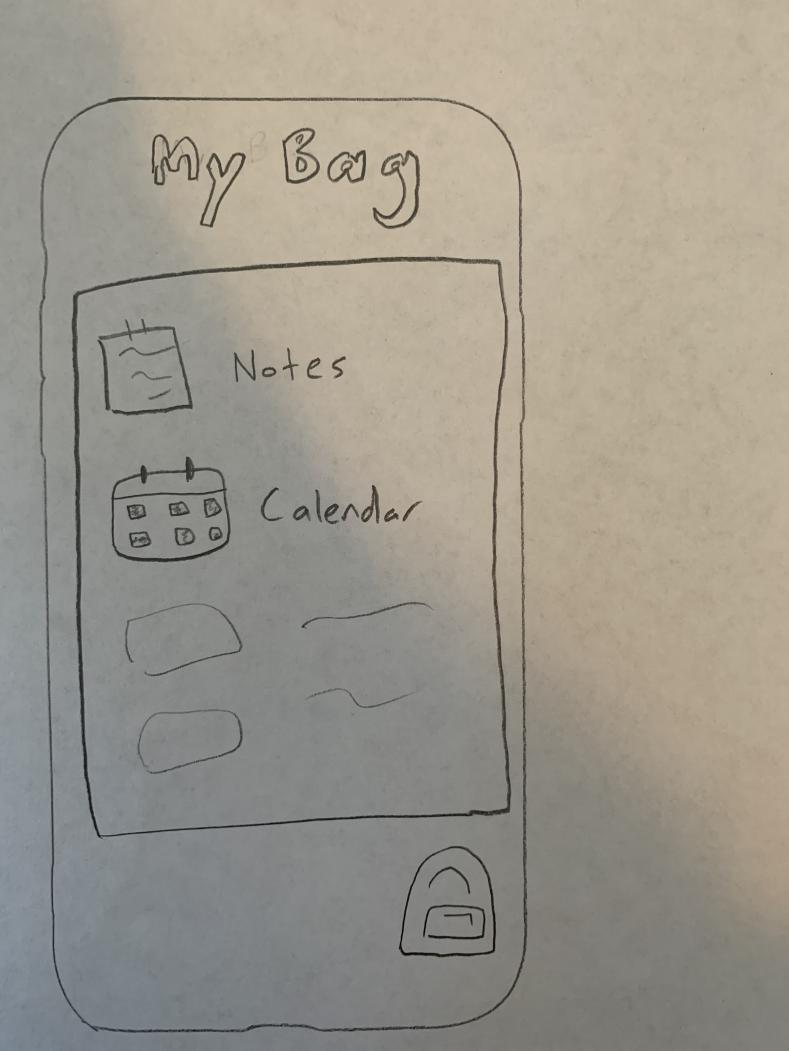 My Bag
Notes
Calendar